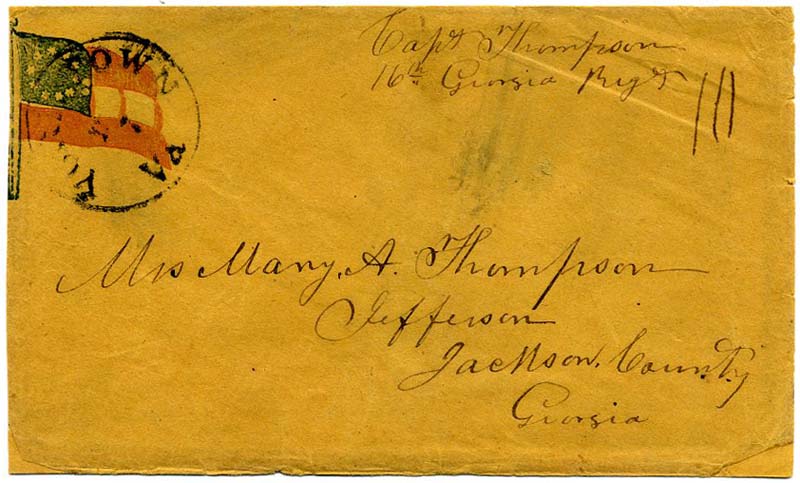 Capt Thompson
16th Georgia Regt
TOWN
VA
Mrs Mary, A. Thompson
Jefferson
Jackson, County
Georgia